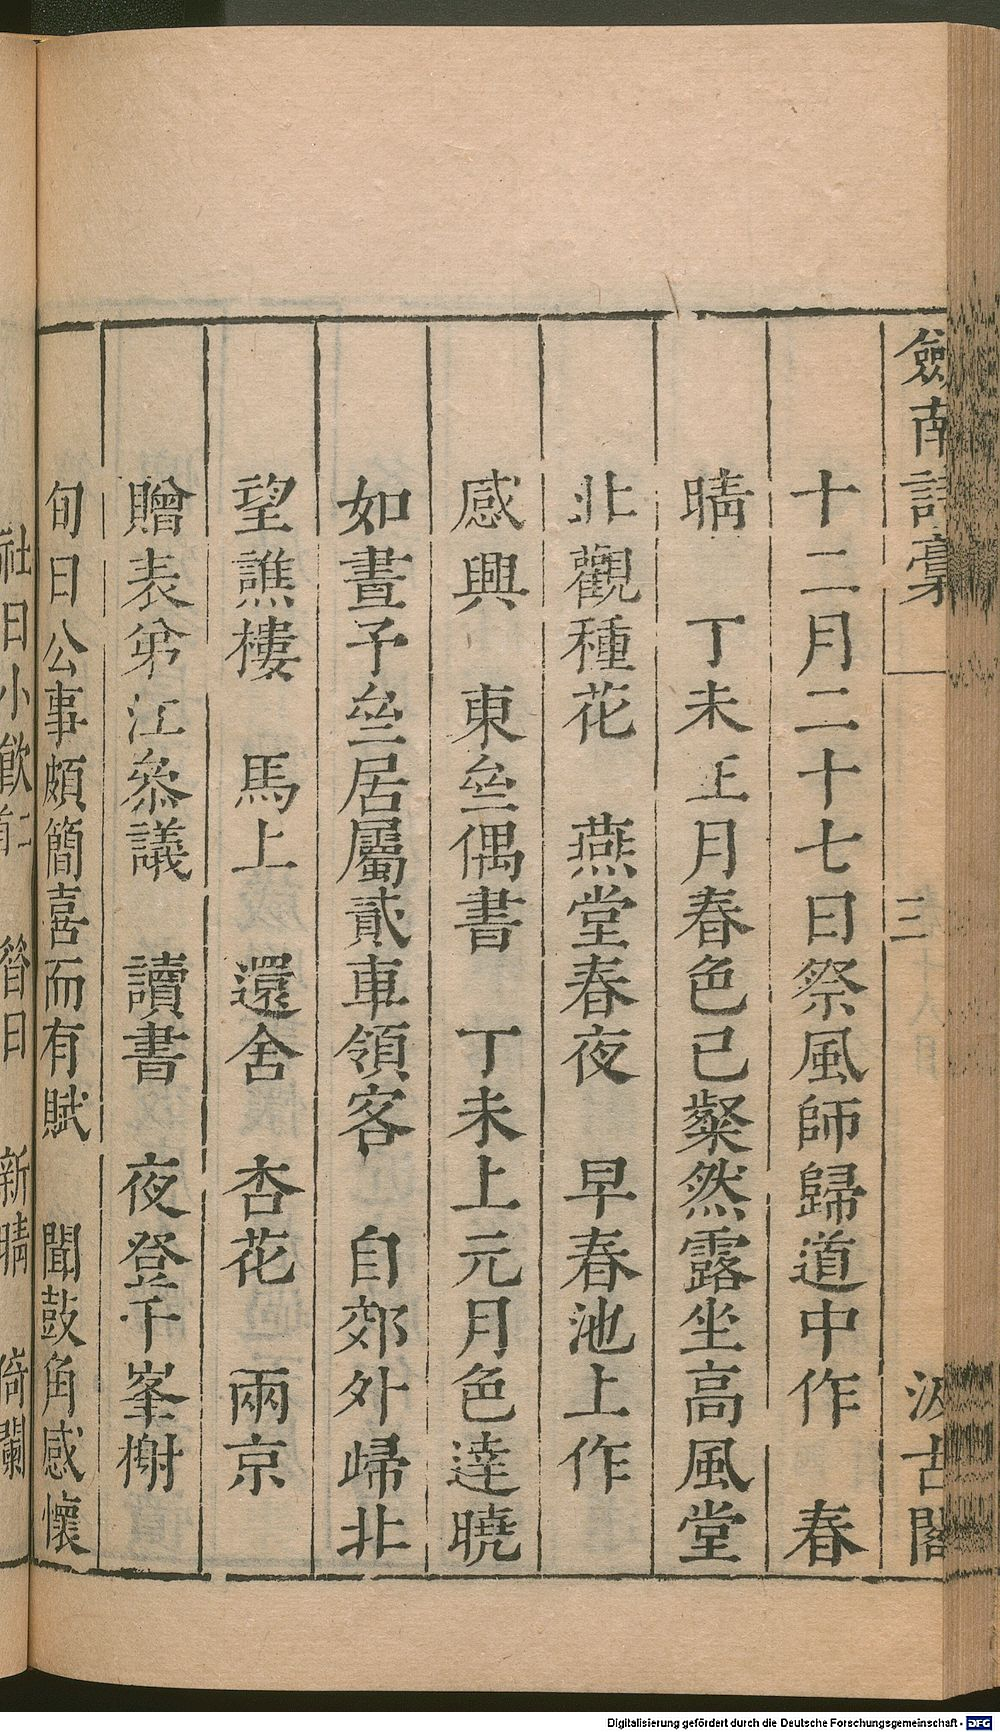 劍南詩稾 三 汲古閣
十二月二十七日祭風師歸道中作 春
晴 丁未正月春色已粲然露坐高風堂
北觀種花 燕堂春夜 早春池上作
感興 東垒偶書 丁未上元月色達曉
如晝予垒居屬貳車領客 自郊外歸北
望譙樓 馬上 還舍 杏花 兩京
贈表弟江叅議 讀書 夜登千峯榭
旬日公事頗簡喜而有賦 聞鼓角感懷
社日小飲 眢日 新晴 倚闌
Digitalisierung gefördert durch die Deutsche Forschungsgemeinschaft - DFG